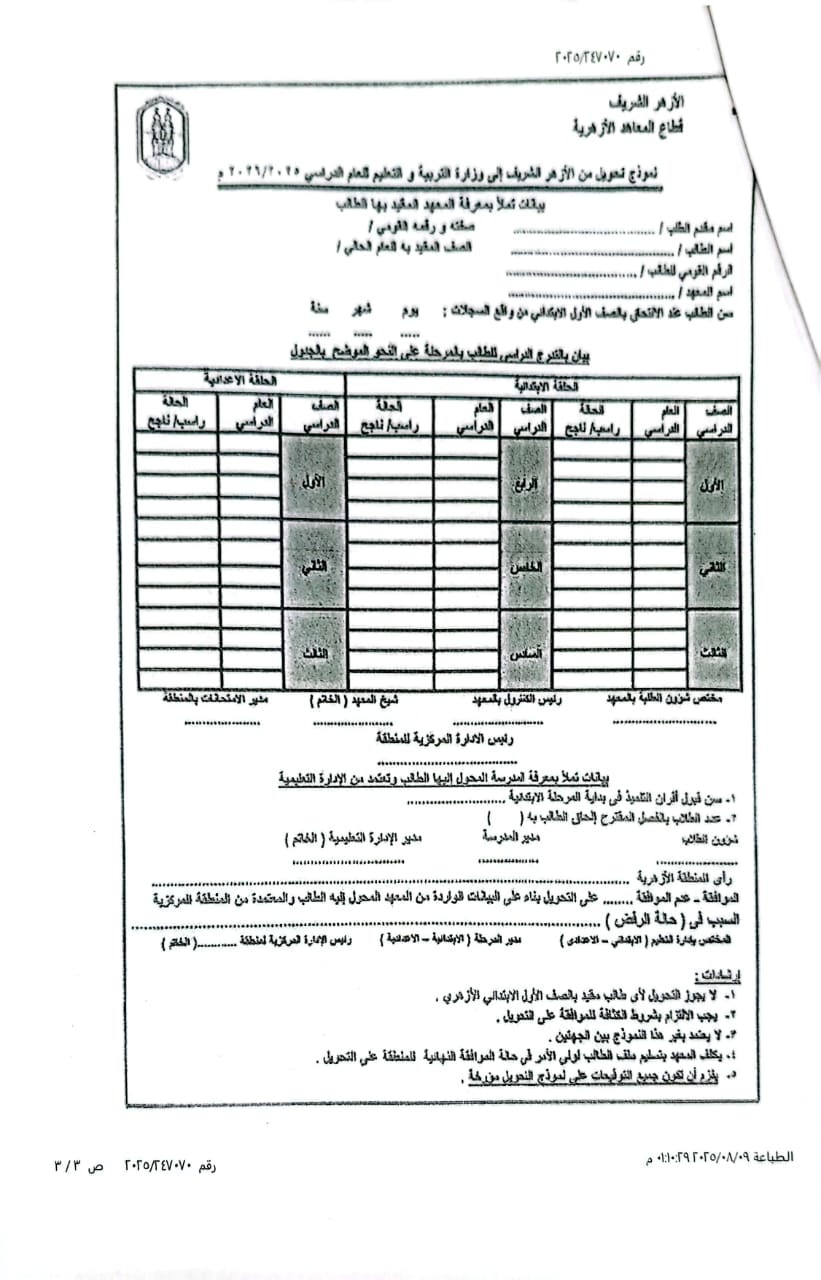 رقم ٢٠٢٥/٢٤٧٠٧٠
الأزهر الشريف
قطاع المعاهد الأزهرية
نموذج تحويل من الأزهر الشريف إلى وزارة التربية و التعليم للعام الدراسي ٢٠٢٦/٢٠٢٥ م
بيانات تملأ بمعرفة المعهد المقيد بها الطالب
اسم مقدم الطلب / .................... صفته و رقمه القومي /
اسم الطالب / .................... الصف المقيد به العام الحالي /
الرقم القومي للطالب / ....................
اسم المعهد / ....................
سن الطالب عند الالتحاق بالصف الأول الابتدائي من واقع السجلات : يوم شهر سنة
..... ..... .....
بيان بالتدرج الدراسي للطالب بالمرحلة على النحو الموضح بالجدول
الحلقة الابتدائية الحلقة الاعدادية
الصف الدراسي العام الدراسي الحالة راسب/ ناجح الصف الدراسي العام الدراسي الحالة راسب/ ناجح الصف الدراسي العام الدراسي الحالة راسب/ ناجح
الأول الرابع الأول
الثاني الخامس الثاني
الثالث السادس الثالث
مختص شؤون الطلبة بالمعهد رئيس الكنترول بالمعهد شيخ المعهد ( الخاتم ) مدير الامتحانات بالمنطقة
.................... .................... .................... ....................
رئيس الادارة المركزية للمنطقة
....................
بيانات تملأ بمعرفة المدرسة المحول إليها الطالب وتعتمد من الإدارة التعليمية
١- سن قبول أقران التلميذ فى بداية المرحلة الابتدائية ....................
٢- عدد الطلاب بالفصل المقترح إلحاق الطالب به ( )
شؤون الطلاب مدير المدرسة مدير الإدارة التعليمية ( الخاتم )
.................... .................... ....................
رأى المنطقة الأزهرية ....................
الموافقة - عدم الموافقة ........ على التحويل بناء على البيانات الواردة من المعهد المحول إليه الطالب والمعتمدة من المنطقة المركزية
السبب فى ( حالة الرفض ) ....................
المختص بإدارة التعليم ( الابتدائي – الاعدادى ) مدير المرحلة ( الابتدائية – الاعدادية ) رئيس الإدارة المركزية لمنطقة ...........( الخاتم )
إرشادات :
١- لا يجوز التحويل لأى طالب مقيد بالصف الأول الابتدائي الأزهري .
٢- يجب الالتزام بشروط الكثافة للموافقة على التحويل .
٣- لا يعتد بغير هذا النموذج بين الجهتين .
٤- يكلف المعهد بتسليم ملف الطالب لولي الأمر في حالة الموافقة النهائية للمنطقة على التحويل .
٥- يلزم أن تكون جميع التوقيعات على نموذج التحويل مؤرخة .
الطباعة ٢٠٢٥/٠٨/٠٩ ٠١:١٠:٢٩ م
رقم ٢٠٢٥/٢٤٧٠٧٠ ص ٣ / ٣